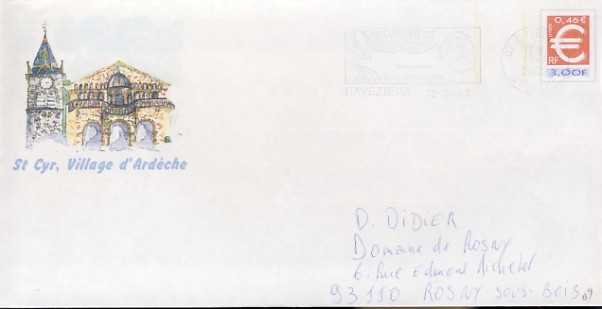 0,46 €
€
RF
3,00F
DAVEZIEUX
St Cyr, Village d'Ardèche
D. DIDIER
Domaine de ROSNY
6. Rue Edmond Michelet
93110 ROSNY-SOUS-BOIS